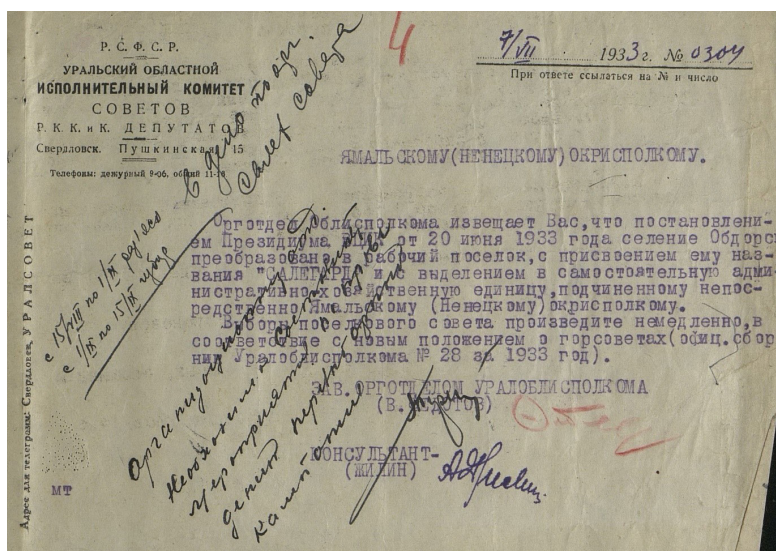 Р. С. Ф. С. Р.
УРАЛЬСКИЙ ОБЛАСТНОЙ
ИСПОЛНИТЕЛЬНЫЙ КОМИТЕТ
СОВЕТОВ
Р. К. К. и К. ДЕПУТАТОВ
Свердловск. Пушкинская, 15
Телефоны: дежурный 9-06, общий 11-16
4
7/VII 1933 г. № 0304
При ответе ссылаться на № и число
В дело по орг.
Салех совета
ЯМАЛЬСКОМУ(НЕНЕЦКОМУ)ОКРИСПОЛКОМУ.
Орготдел Облисполкома извещает Вас,что постановлени-
ем Президиума ВЦИК от 20 июня 1933 года селение Обдорс
преобразовано в рабочий поселок,с присвоением ему наз-
вания "САЛЕГАРД" и с выделением в самостоятельную адми-
нистративно-хозяйственную единицу,подчиненному непос-
редственно Ямальскому (Ненецкому)окрисполкому.
Выборы поселкового совета произведите немедленно,в
соответствие с новым положением о горсоветах(офиц.сбор
ник Уралоблисполкома № 28 за 1933 год).
ЗАВ.ОРГОТДЕЛОМ УРАЛОБЛИСПОЛКОМА
(В.ФЕДОТОВ)
КОНСУЛЬТАНТ-
(ЖИЛИН)
МТ
с 15/VIII по 1/IX
с 1/IX по 15/IX
Адрес для телеграмм: Свердловск, УРАЛСОВЕТ